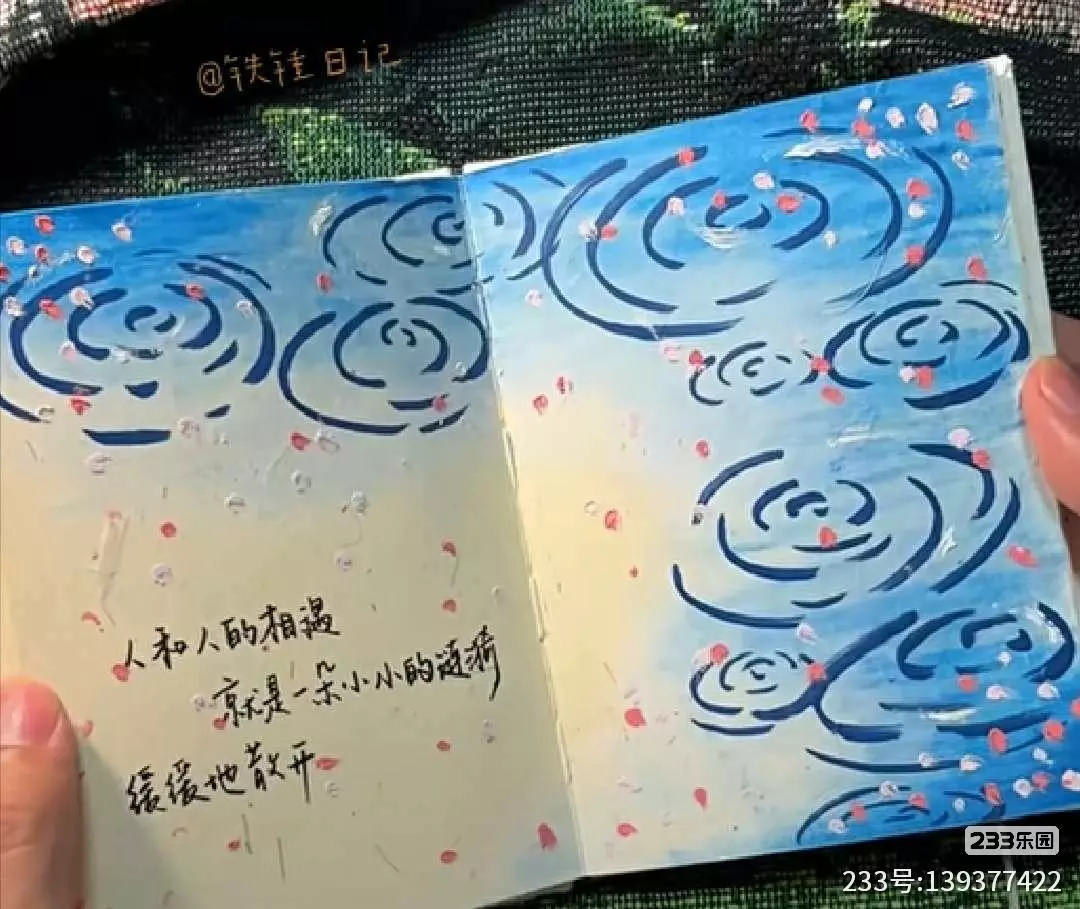 @铁锤日记
人和人的相遇
就是一朵小小的涟漪
缓缓地散开
233乐园
233号:139377422